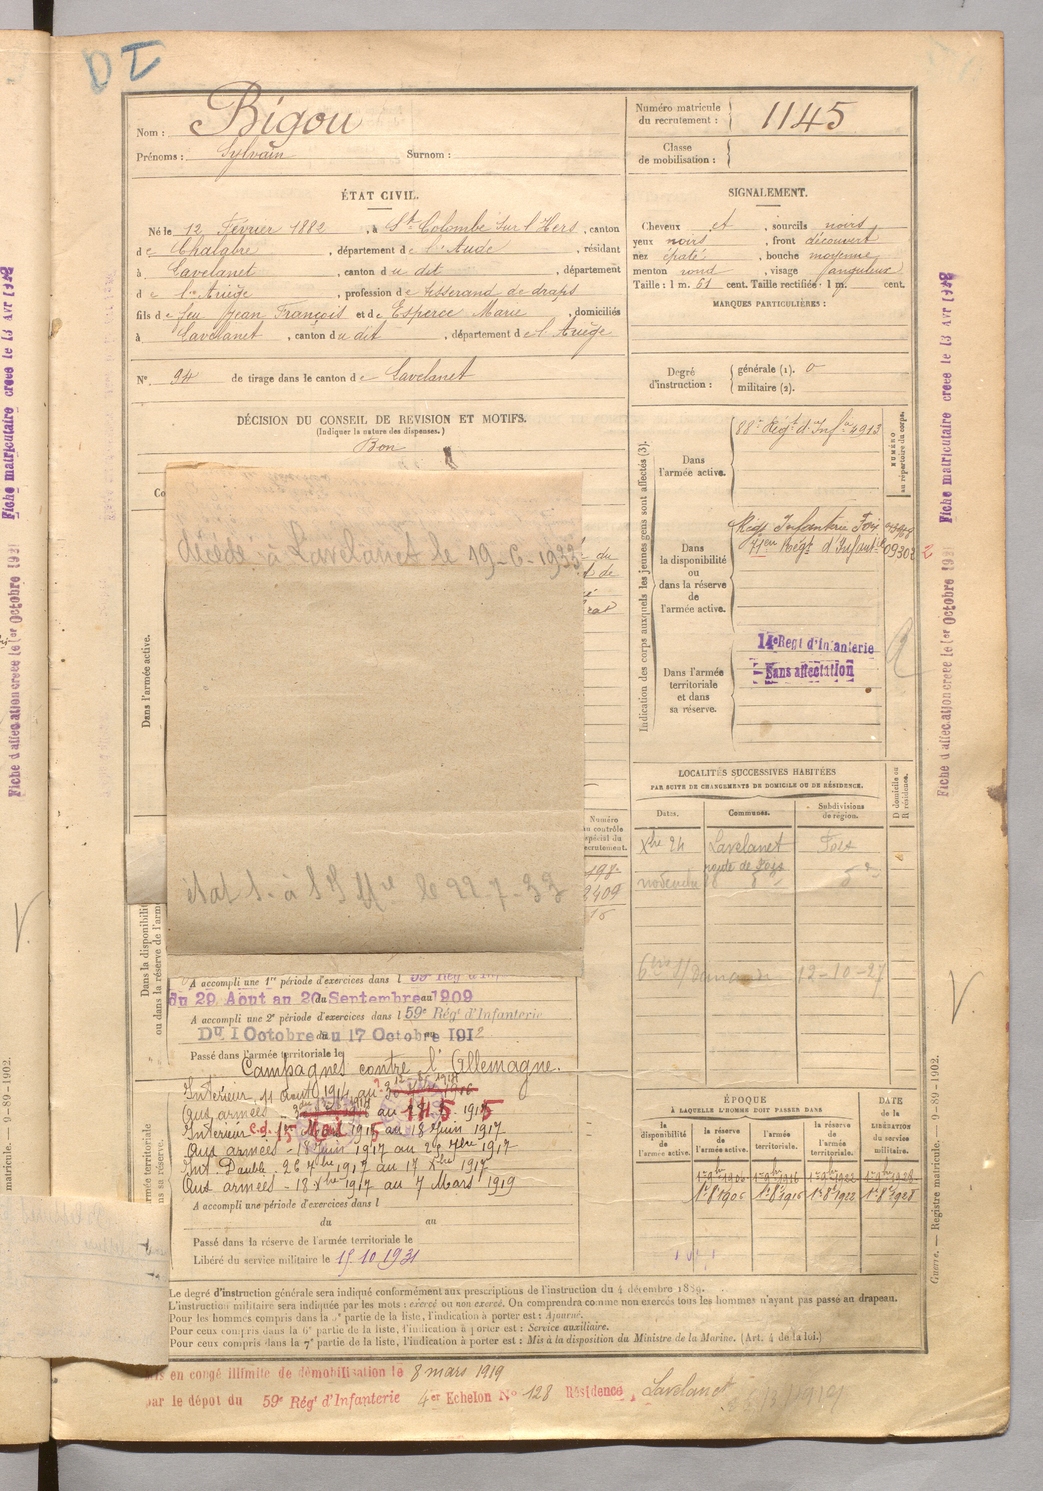 DI
Nom : Bigou
Prénoms : Sylvain Surnom :
Numéro matricule du recrutement : 1145
Classe de mobilisation :
ÉTAT CIVIL.
Né le 12 Février 1882, à Ste Colombe sur l'Hers, canton
de Chalabre, département de l'Aude, résidant
à Lavelanet, canton du dit, département
de l'Ariège, profession de tisserand de draps
fils de feu Jean François et de Esperce Marie, domiciliés
à Lavelanet, canton du dit, département de l'Ariège
N° 94 de tirage dans le canton de Lavelanet
SIGNALEMENT.
Cheveux et, sourcils noirs
yeux noirs, front découvert
nez épaté, bouche moyenne
menton rond, visage anguleux
Taille : 1 m. 61 cent. Taille rectifiée : 1 m. cent.
MARQUES PARTICULIÈRES :
Degré d'instruction : générale (1). 0
militaire (2).
DÉCISION DU CONSEIL DE REVISION ET MOTIFS.
(Indiquer la nature des dispenses.)
Bon
décédé à Lavelanet le 19-6-1933
le 22-7-33
Dans l'armée active.
Indication des corps auxquels les jeunes gens sont affectés (3).
NUMÉRO au répertoire du corps.
Dans l'armée active.
88e Régt d'Infie 4913
Dans la disponibilité ou dans la réserve de l'armée active.
Régt Infanterie Foix
Régt d'Infantie 09302
Dans l'armée territoriale et dans sa réserve.
14e Regt d'Infanterie
Sans affectation
LOCALITÉS SUCCESSIVES HABITÉES
PAR SUITE DE CHANGEMENTS DE DOMICILE OU DE RÉSIDENCE.
Dates. Communes. Subdivisions de région. D domicile ou R résidence.
Xbre 24 Lavelanet Foix
route de Foix
12-10-27
Numéro au contrôle spécial du recrutement.
2409
A accompli une 1re période d'exercices dans l 59e Rég d'Inf
du 29 Aout au 20 Septembre 1909
A accompli une 2e période d'exercices dans l 59e Rég' d'Infanterie
Du 1 Octobre au 17 Octobre 1912
Passé dans l'armée territoriale le
Campagnes contre l'Allemagne.
Intérieur 11 août 1914 au
Aux armées au 14 5 1915
Intérieur c.d. 15 Mai 1915 au 18 Juin 1917
Aux armées - 18 Juin 1917 au 26 7bre 1917
Int. Double 26 7bre 1917 au 17 Xbre 1917
Aux armées - 18 Xbre 1917 au 7 Mars 1919
A accompli une période d'exercices dans l
du au
Passé dans la réserve de l'armée territoriale le
Libéré du service militaire le 15 10 1931
ÉPOQUE
À LAQUELLE L'HOMME DOIT PASSER DANS
DATE de la LIBÉRATION du service militaire.
la disponibilité de l'armée active. la réserve de l'armée active. l'armée territoriale. la réserve de l'armée territoriale.
1er 8bre 1906 1er 8bre 1916 1er 8bre 1922 1er 8bre 1928
Le degré d'instruction générale sera indiqué conformément aux prescriptions de l'instruction du 4 décembre 1889.
L'instruction militaire sera indiquée par les mots : exercé ou non exercé. On comprendra comme non exercés tous les hommes n'ayant pas passé au drapeau.
Pour les hommes compris dans la 5e partie de la liste, l'indication à porter est : Ajourné.
Pour ceux compris dans la 6e partie de la liste, l'indication à porter est : Service auxiliaire.
Pour ceux compris dans la 7e partie de la liste, l'indication à porter est : Mis à la disposition du Ministre de la Marine. (Art. 4 de la loi.)
en congé illimité de démobilisation le 8 mars 1919
par le dépôt du 59e Rég' d'Infanterie 4er Echelon N° 128 Résidence, Lavelanet
Fiche matriculaire creee le 13 Avr 1928
Fiche d'affectation creee le 1er Octobre 19
Fiche matriculaire creee le 13 Avr 1928
Fiche d'affectation creee le 1er Octobre 19
matricule. — 9-89-1902.
Guerre. — Registre matricule. — 9-89-1902.